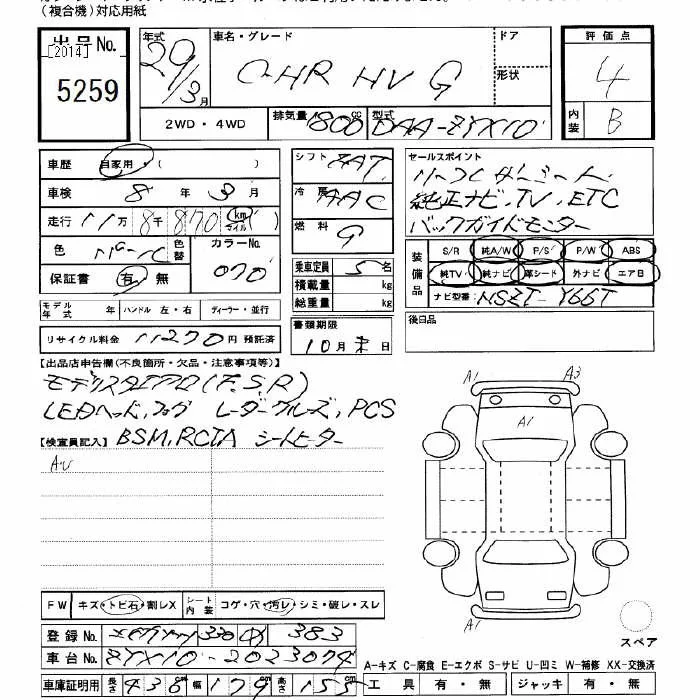 (複合機)対応用紙
出品No.
[2014]
5259
年式
29/3月
車名・グレード
C-HR HV G
ドア
形状
評価点
4
2WD・4WD
排気量 1800 cc
型式 DAA-ZYX10
内装 B
車歴 自家用・( )
車検 8年3月
走行 11万8千870 km マイル
色 パール 色替
カラーNo. 070
保証書 有・無
シフト AT
冷房 AAC
燃料 G
乗車定員 5名
積載量 kg
総重量 kg
セールスポイント
純正ナビ、TV、ETC
バックガイドモニター
装備品
S/R 純A/W P/S P/W ABS
純TV 純ナビ 革シート 外ナビ エアB
ナビ型番 NSZT-Y66T
モデル年式 年 ハンドル 左・右 ディーラー・並行
リサイクル料金 11270円 預託済
書類期限
10月末日
後日品
【出品店申告欄(不良箇所・欠品・注意事項等)】
モデリスタエアロ(F.S.R)
LEDヘッド、フォグ レーダークルーズ、PCS
BSM、RCTA シートヒーター
【検査員記入】
AU
A1
A3
A1
A1
FW キズ・トビ石・割レX
シート内装 コゲ・穴・汚レ・シミ・破レ・スレ
登録No. 330 383
車台No. ZYX10-2023074
スペア
A-キズ C-腐食 E-エクボ S-サビ U-凹ミ W-補修 XX-交換済
車庫証明用 長さ 436cm 幅 179 高さ 155cm
工具 有・無 ジャッキ 有・無